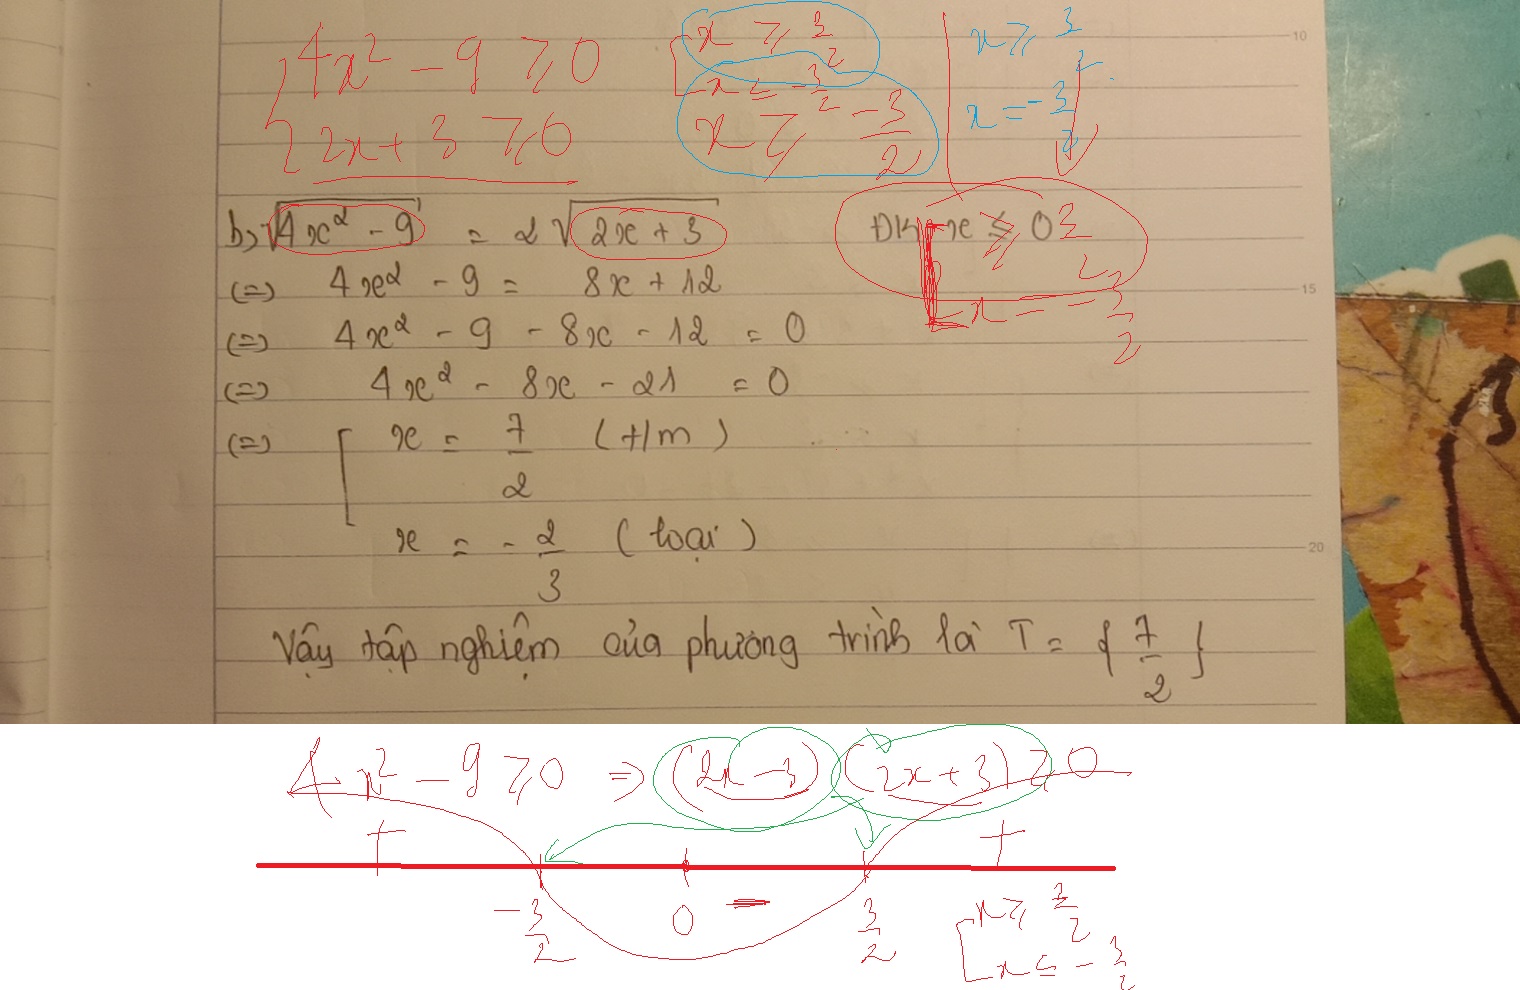 4x² - 9 ≥ 0 [ x ≥ 3/2 x ≥ 3/2
x ≤ -3/2
2x + 3 ≥ 0 x ≥ -3/2 x = -3/2
b, √(4x² - 9) = 2√(2x + 3) ĐK x ≥ 3/2
(=) 4x² - 9 = 8x + 12 x = -3/2
(=) 4x² - 9 - 8x - 12 = 0
(=) 4x² - 8x - 21 = 0
(=) [ x = 7/2 (t/m)
x = -2/3 (loại)
Vậy tập nghiệm của phương trình là T = { 7/2 }
4x² - 9 ≥ 0 => (2x - 3)(2x + 3) ≥ 0
+ +
-3/2 0 - 3/2 [ x ≥ 3/2
x ≤ -3/2
10
15
20